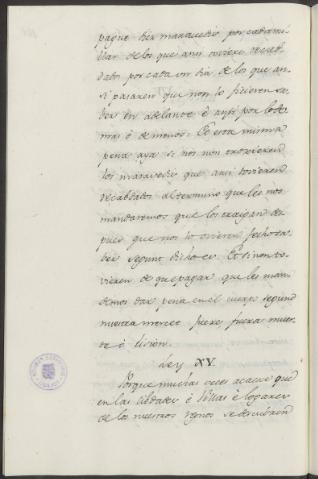 pague diez maravedis por cada mi-
llar de los que ansi toviere recab-
dados por cada un dia de los que an-
si pasaren que non lo ficieren sa-
ber en adelante é ansi por lo de
mas é de menos: Et esta misma
pena aya si nos non troxieren
los maravedis que ansi tovieren
recabdados al termino que les nos
mandaremos que los traigan des
pues que nos lo ovieren fecho sa-
ber segunt dicho es. Et si non to-
vieren de que pagar que les man-
demos dar pena en el cuerpo segund
nuestra merced fuere, fuera muer-
te ó lision.
Ley XV.
Porque muchas veces acaece que
en las cibdades é Villas é logares
de los nuestros regnos se descubren